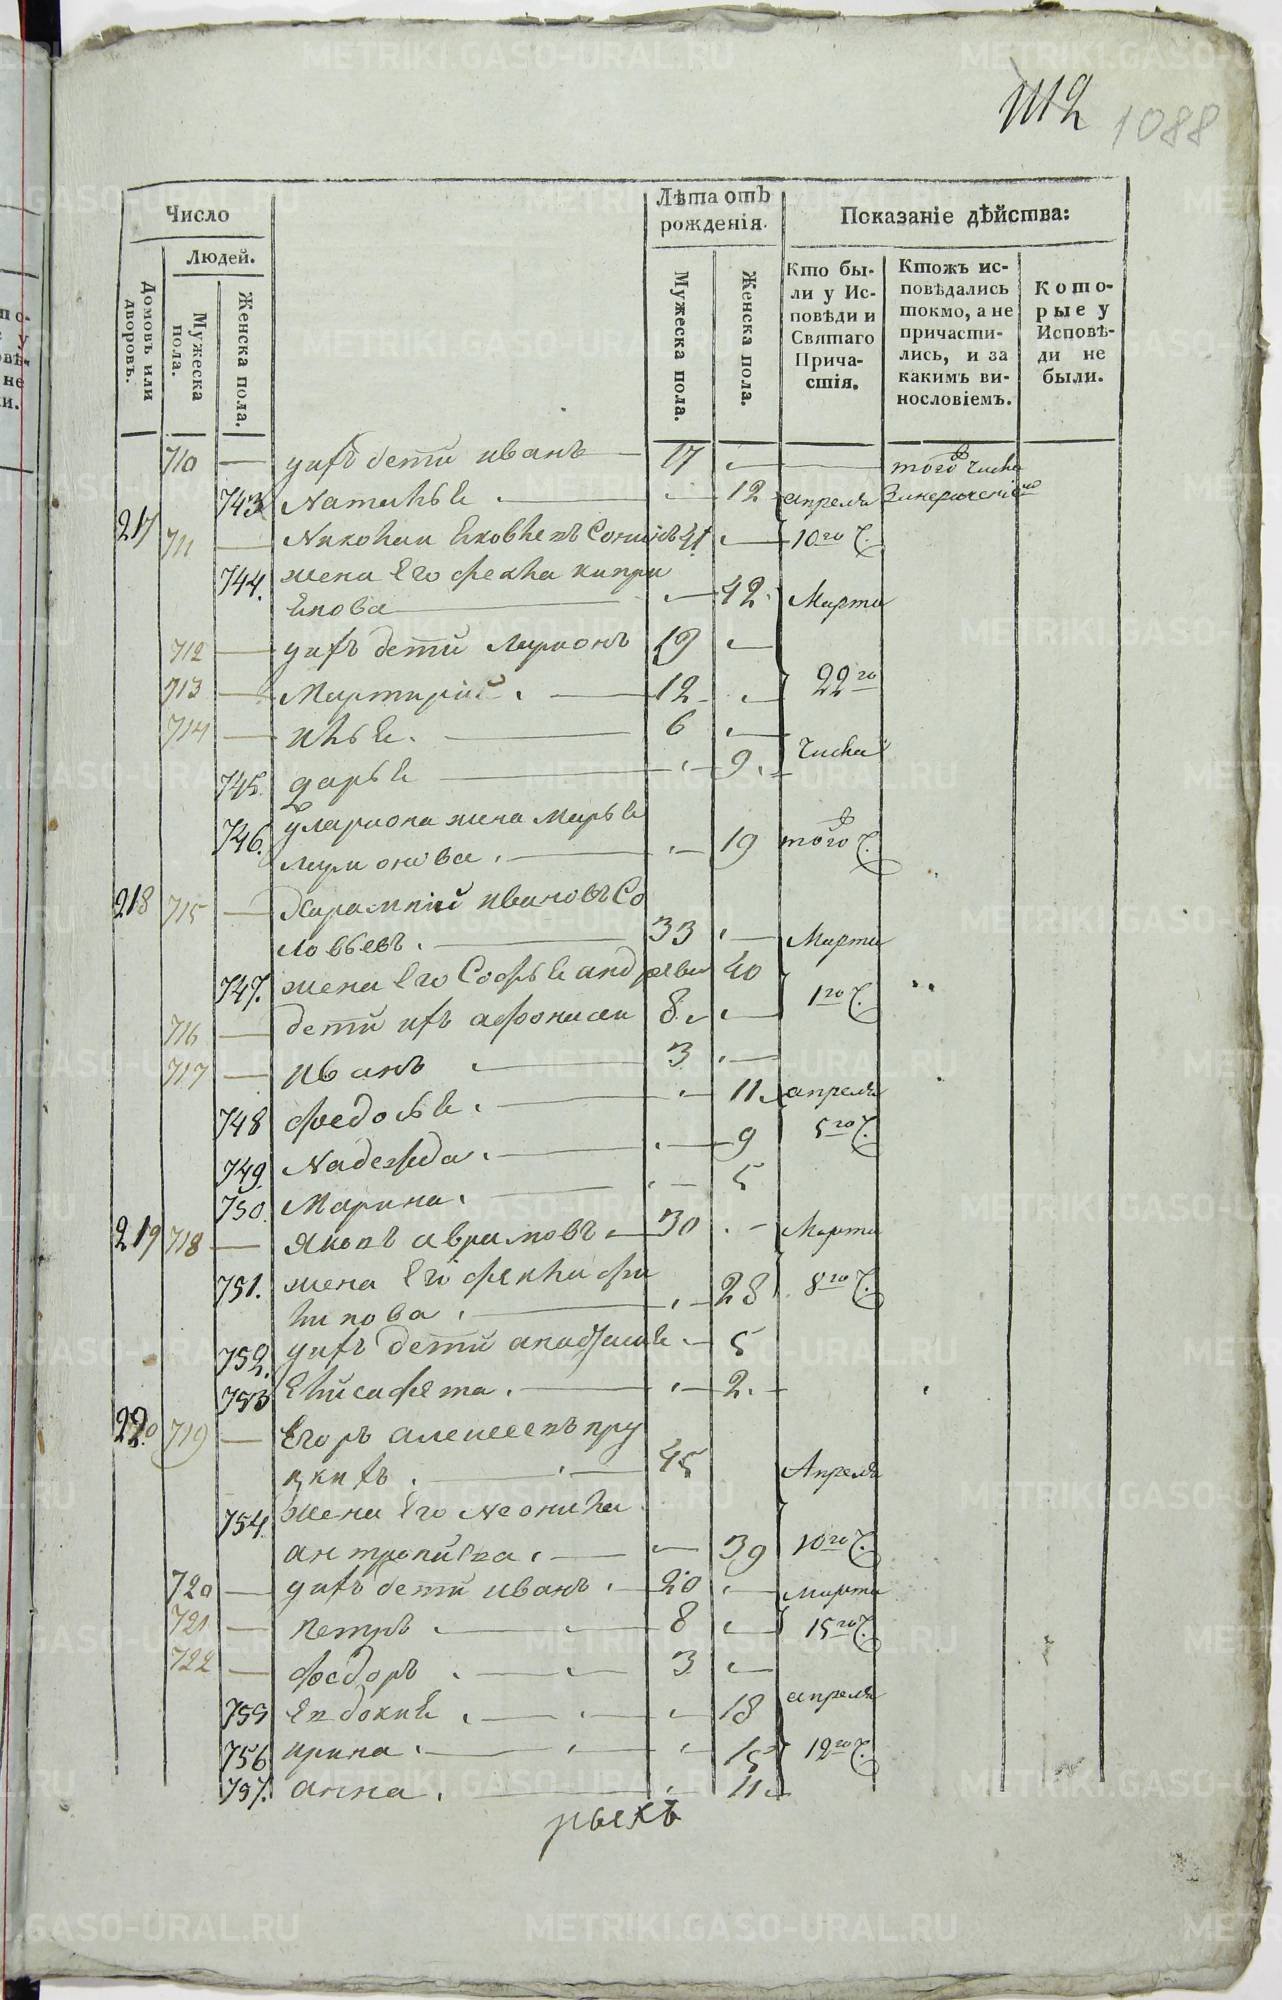 1112 1088
Число
Людей.
Домовъ или дворовъ.
Мужеска пола.
Женска пола.
Лѣта отъ рожденія.
Мужеска пола.
Женска пола.
Показаніе дѣйства:
Кто были у Исповѣди и Святаго Причастія.
Ктожъ исповѣдались токмо, а не причастились, и за какимъ винословіемъ.
Которые у Исповѣди не были.
710 — дети иванъ — 17 того числа
743 Наталья — 12 апреля
217 711 — 41 — 10го Ч.
744. жена Его Фекла кипри
янова — 42. Марта
712 — дети Ларионъ 19 —
713 — Мартирій. — 12 — 22го
714 — илья. — 6 —
745. дарья — 9. — Числа
746. улариона жена Марья
— 19 того Ч.
218 715 — Харампій ивановъ Со
ловьевъ. — 33 — Марта
747. жена Его Софья андреева 40 1го Ч.
716 — дети ихъ афонасей 8. —
717 — иванъ — 3 —
748 федосья. — 11. апреля
749. Надежда. — 9 5го Ч.
750. Марина. — 5
219 718 — яковъ аврамовъ — 30 — Марта
751. жена Его фекла фи
липова. — 28 8го Ч.
752. дети анастасия — 5
753 Елисафета. — 2. —
220. 719 — Егоръ алексеевъ пру
— 45 Апреля
754. жена Его Неонила
антропиева. — 39 10го Ч.
720 — дети иванъ. — 20 — марта
721 — петръ — 8 — 15го Ч.
722 — федоръ — 3 —
755 Евдокия — 18 апреля
756 ирина. — 15 12го Ч.
757. анна. — 11. —
METRIKI.GASO-URAL.RU